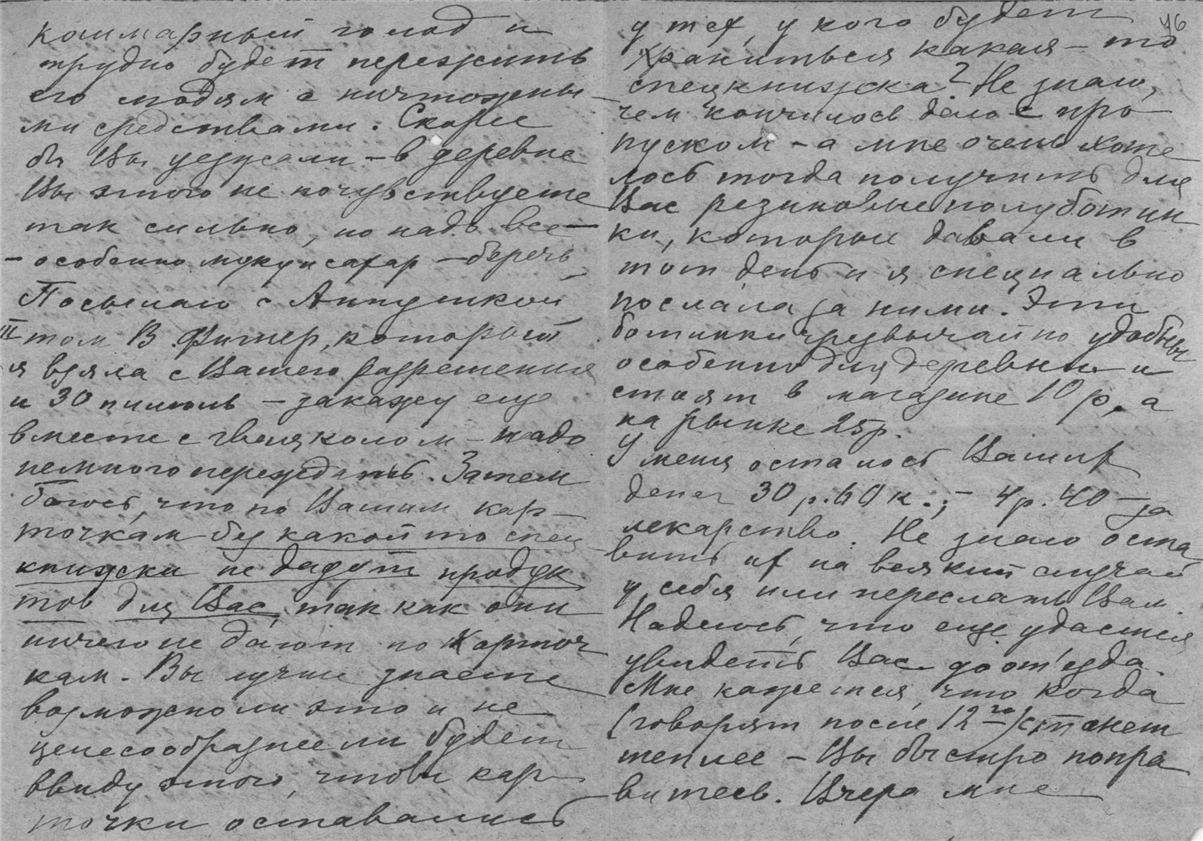 кошмарный голод и
трудно будет пережить
его людям с ничтожны-
ми средствами. Скорее
бы Вы уезжали – в деревне
Вы этого не почувствуете
так сильно, но надо все –
– особенно муку и сахар – беречь.
Посылаю с Аннушкой
III том В. Фигнер, который
я взяла с Вашего разрешения
и 30 пилюль – закажу еще
вместе с гваяколом – надо
немного переждать. Затем
боюсь, что по Вашим кар-
точкам без какой то спец
книжки не дадут продук
тов для Вас, так как они
ничего не дают по карточ
кам. Вы лучше знаете
возможно ли это и не
целесообразнее ли будет
ввиду этого, чтобы кар-
точки оставались
46
у тех у кого будет
храниться какая – то
спецкнижка? Не знаю,
чем кончилось дело с про
пуском – а мне очень хоте
лось тогда получить для
Вас резиновые полуботин
ки, которые давали в
тот день и я специально
послала за ними. Эти
ботинки чрезвычайно удобны
особенно для деревни и
стоят в магазине 10 р. а
на рынке 25 р.
У меня осталось Ваших
денег 30 р. 60 к.; – 4 р. 40 – за
лекарство. Не знаю оста
вить их на всякий случай
у себя или переслать Вам.
Надеюсь, что еще удастся
увидеть Вас до от'езда.
Мне кажется, что когда
(говорят после 12го) станет
теплее – Вы быстро попра
витесь. Вчера мне